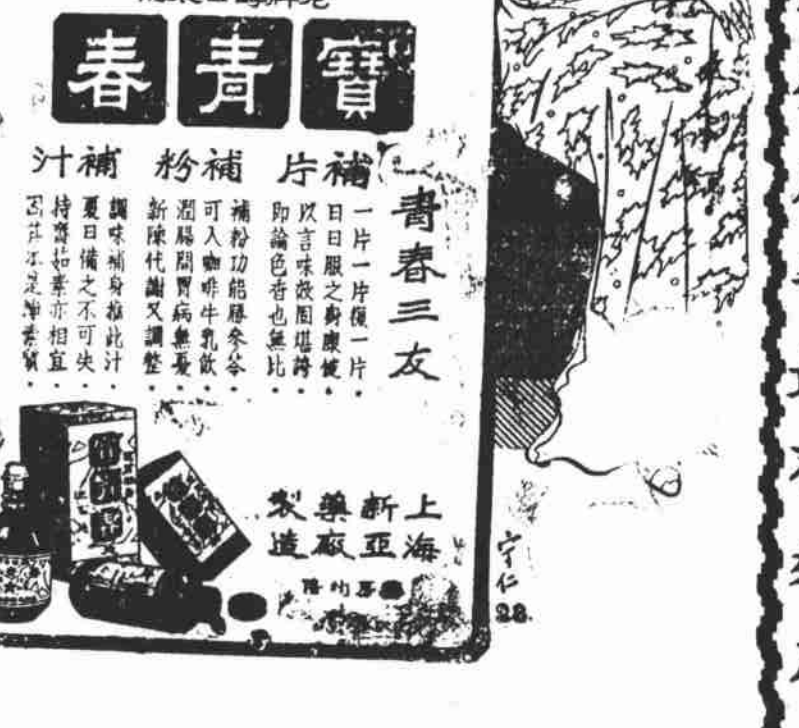 寶青春
青春三友
補片
一片一片復一片
日日服之身康健
以言味效固堪誇
即論色香也無比
補粉
補粉功能勝參苓
可入咖啡牛乳飲
潤腸開胃病無憂
新陳代謝又調整
補汁
調味補身推此汁
夏日備之不可失
持齋茹素亦相宜
上海
新亞
藥廠
製造
守仁